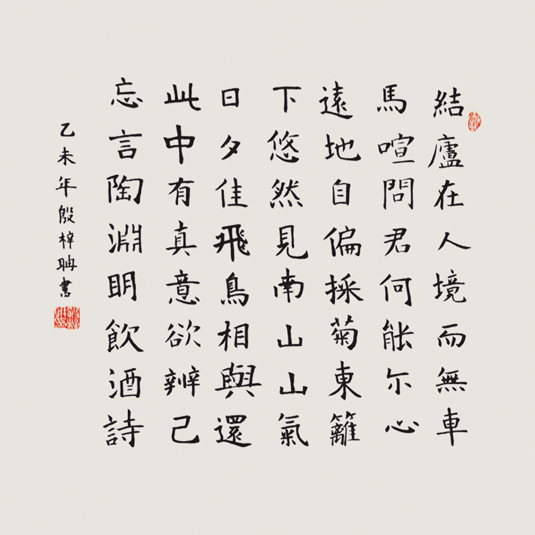 結廬在人境而無車
馬喧問君何能尒心
遠地自偏採菊東籬
下悠然見南山山氣
日夕佳飛鳥相與還
此中有真意欲辨己
忘言陶淵明飲酒詩
乙未年殷梓聃書